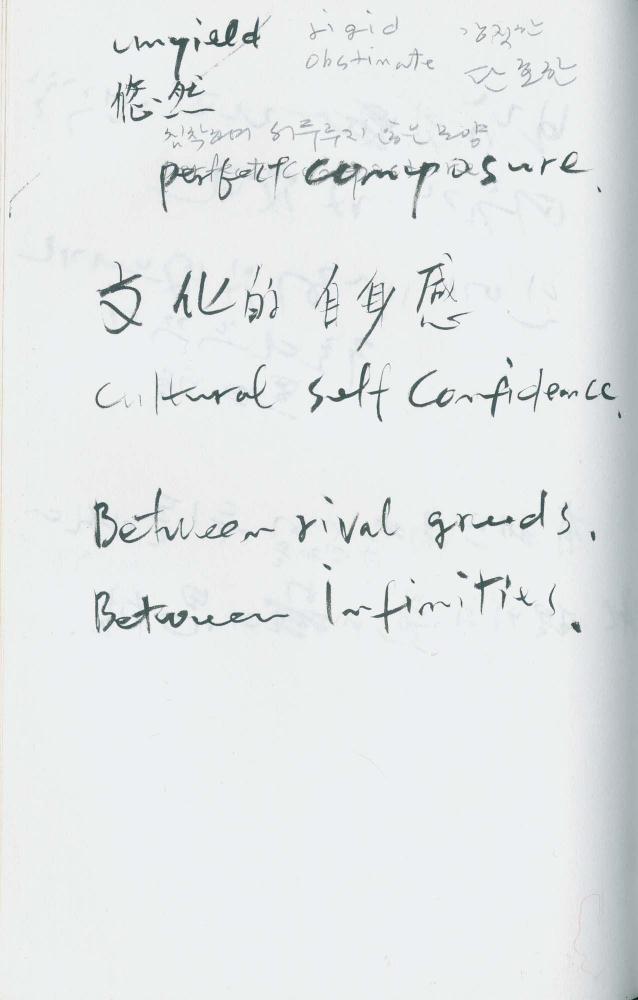 unyield rigid 강직한
obstinate 단호한
悠然
침착하며 서두루지 않은 모양
perfect composure.
文化的 自身感
Cultural self Confidence.
Between rival greeds.
Between Infinities.